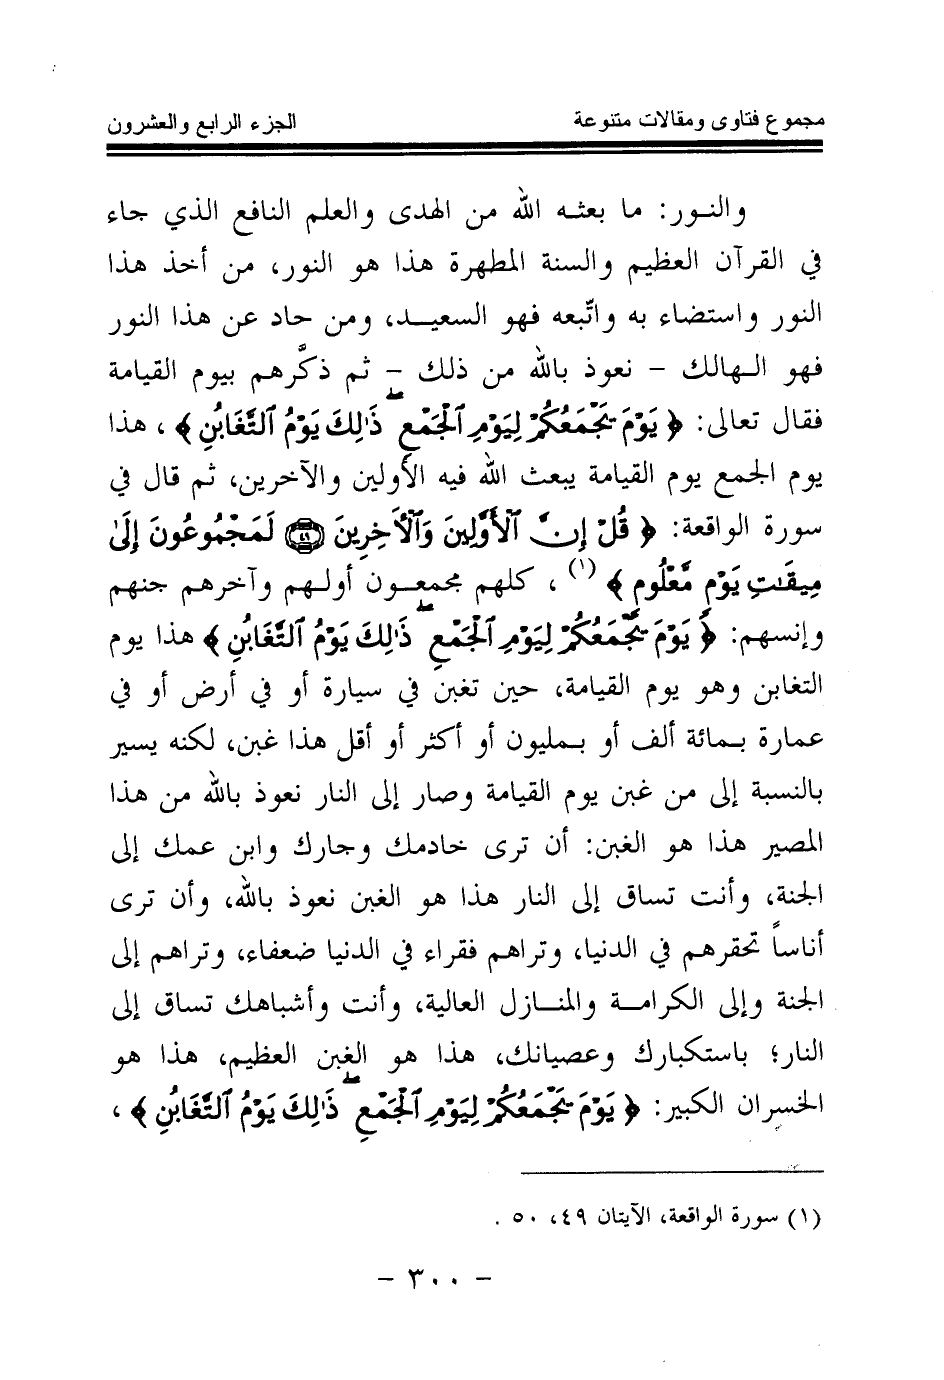 مجموع فتاوى ومقالات متنوعة
الجزء الرابع والعشرون
والنور: ما بعثه الله من الهدى والعلم النافع الذي جاء
في القرآن العظيم والسنة المطهرة هذا هو النور، من أخذ هذا
النور واستضاء به واتّبعه فهو السعيد، ومن حاد عن هذا النور
فهو الهالك – نعوذ بالله من ذلك – ثم ذكَّرهم بيوم القيامة
فقال تعالى: ﴿ يَوْمَ يَجْمَعُكُمْ لِيَوْمِ ٱلْجَمْعِ ۖ ذَٰلِكَ يَوْمُ ٱلتَّغَابُنِ ﴾ ، هذا
يوم الجمع يوم القيامة يبعث الله فيه الأولين والآخرين، ثم قال في
سورة الواقعة: ﴿ قُلْ إِنَّ ٱلْأَوَّلِينَ وَٱلْآخِرِينَ ۝٤٩ لَمَجْمُوعُونَ إِلَىٰ
مِيقَٰتِ يَوْمٍ مَّعْلُومٍ ﴾ (١) ، كلهم مجمعون أولهم وآخرهم جنهم
وإنسهم: ﴿ يَوْمَ يَجْمَعُكُمْ لِيَوْمِ ٱلْجَمْعِ ۖ ذَٰلِكَ يَوْمُ ٱلتَّغَابُنِ ﴾ هذا يوم
التغابن وهو يوم القيامة، حين تغبن في سيارة أو في أرض أو في
عمارة بمائة ألف أو بمليون أو أكثر أو أقل هذا غبن، لكنه يسير
بالنسبة إلى من غبن يوم القيامة وصار إلى النار نعوذ بالله من هذا
المصير هذا هو الغبن: أن ترى خادمك وجارك وابن عمك إلى
الجنة، وأنت تساق إلى النار هذا هو الغبن نعوذ بالله، وأن ترى
أناساً تحقرهم في الدنيا، وتراهم فقراء في الدنيا ضعفاء، وتراهم إلى
الجنة وإلى الكرامة والمنازل العالية، وأنت وأشباهك تساق إلى
النار؛ باستكبارك وعصيانك، هذا هو الغبن العظيم، هذا هو
الخسران الكبير: ﴿ يَوْمَ يَجْمَعُكُمْ لِيَوْمِ ٱلْجَمْعِ ۖ ذَٰلِكَ يَوْمُ ٱلتَّغَابُنِ ﴾ ،
(١) سورة الواقعة، الآيتان ٤٩، ٥٠ .
– ٣٠٠ –